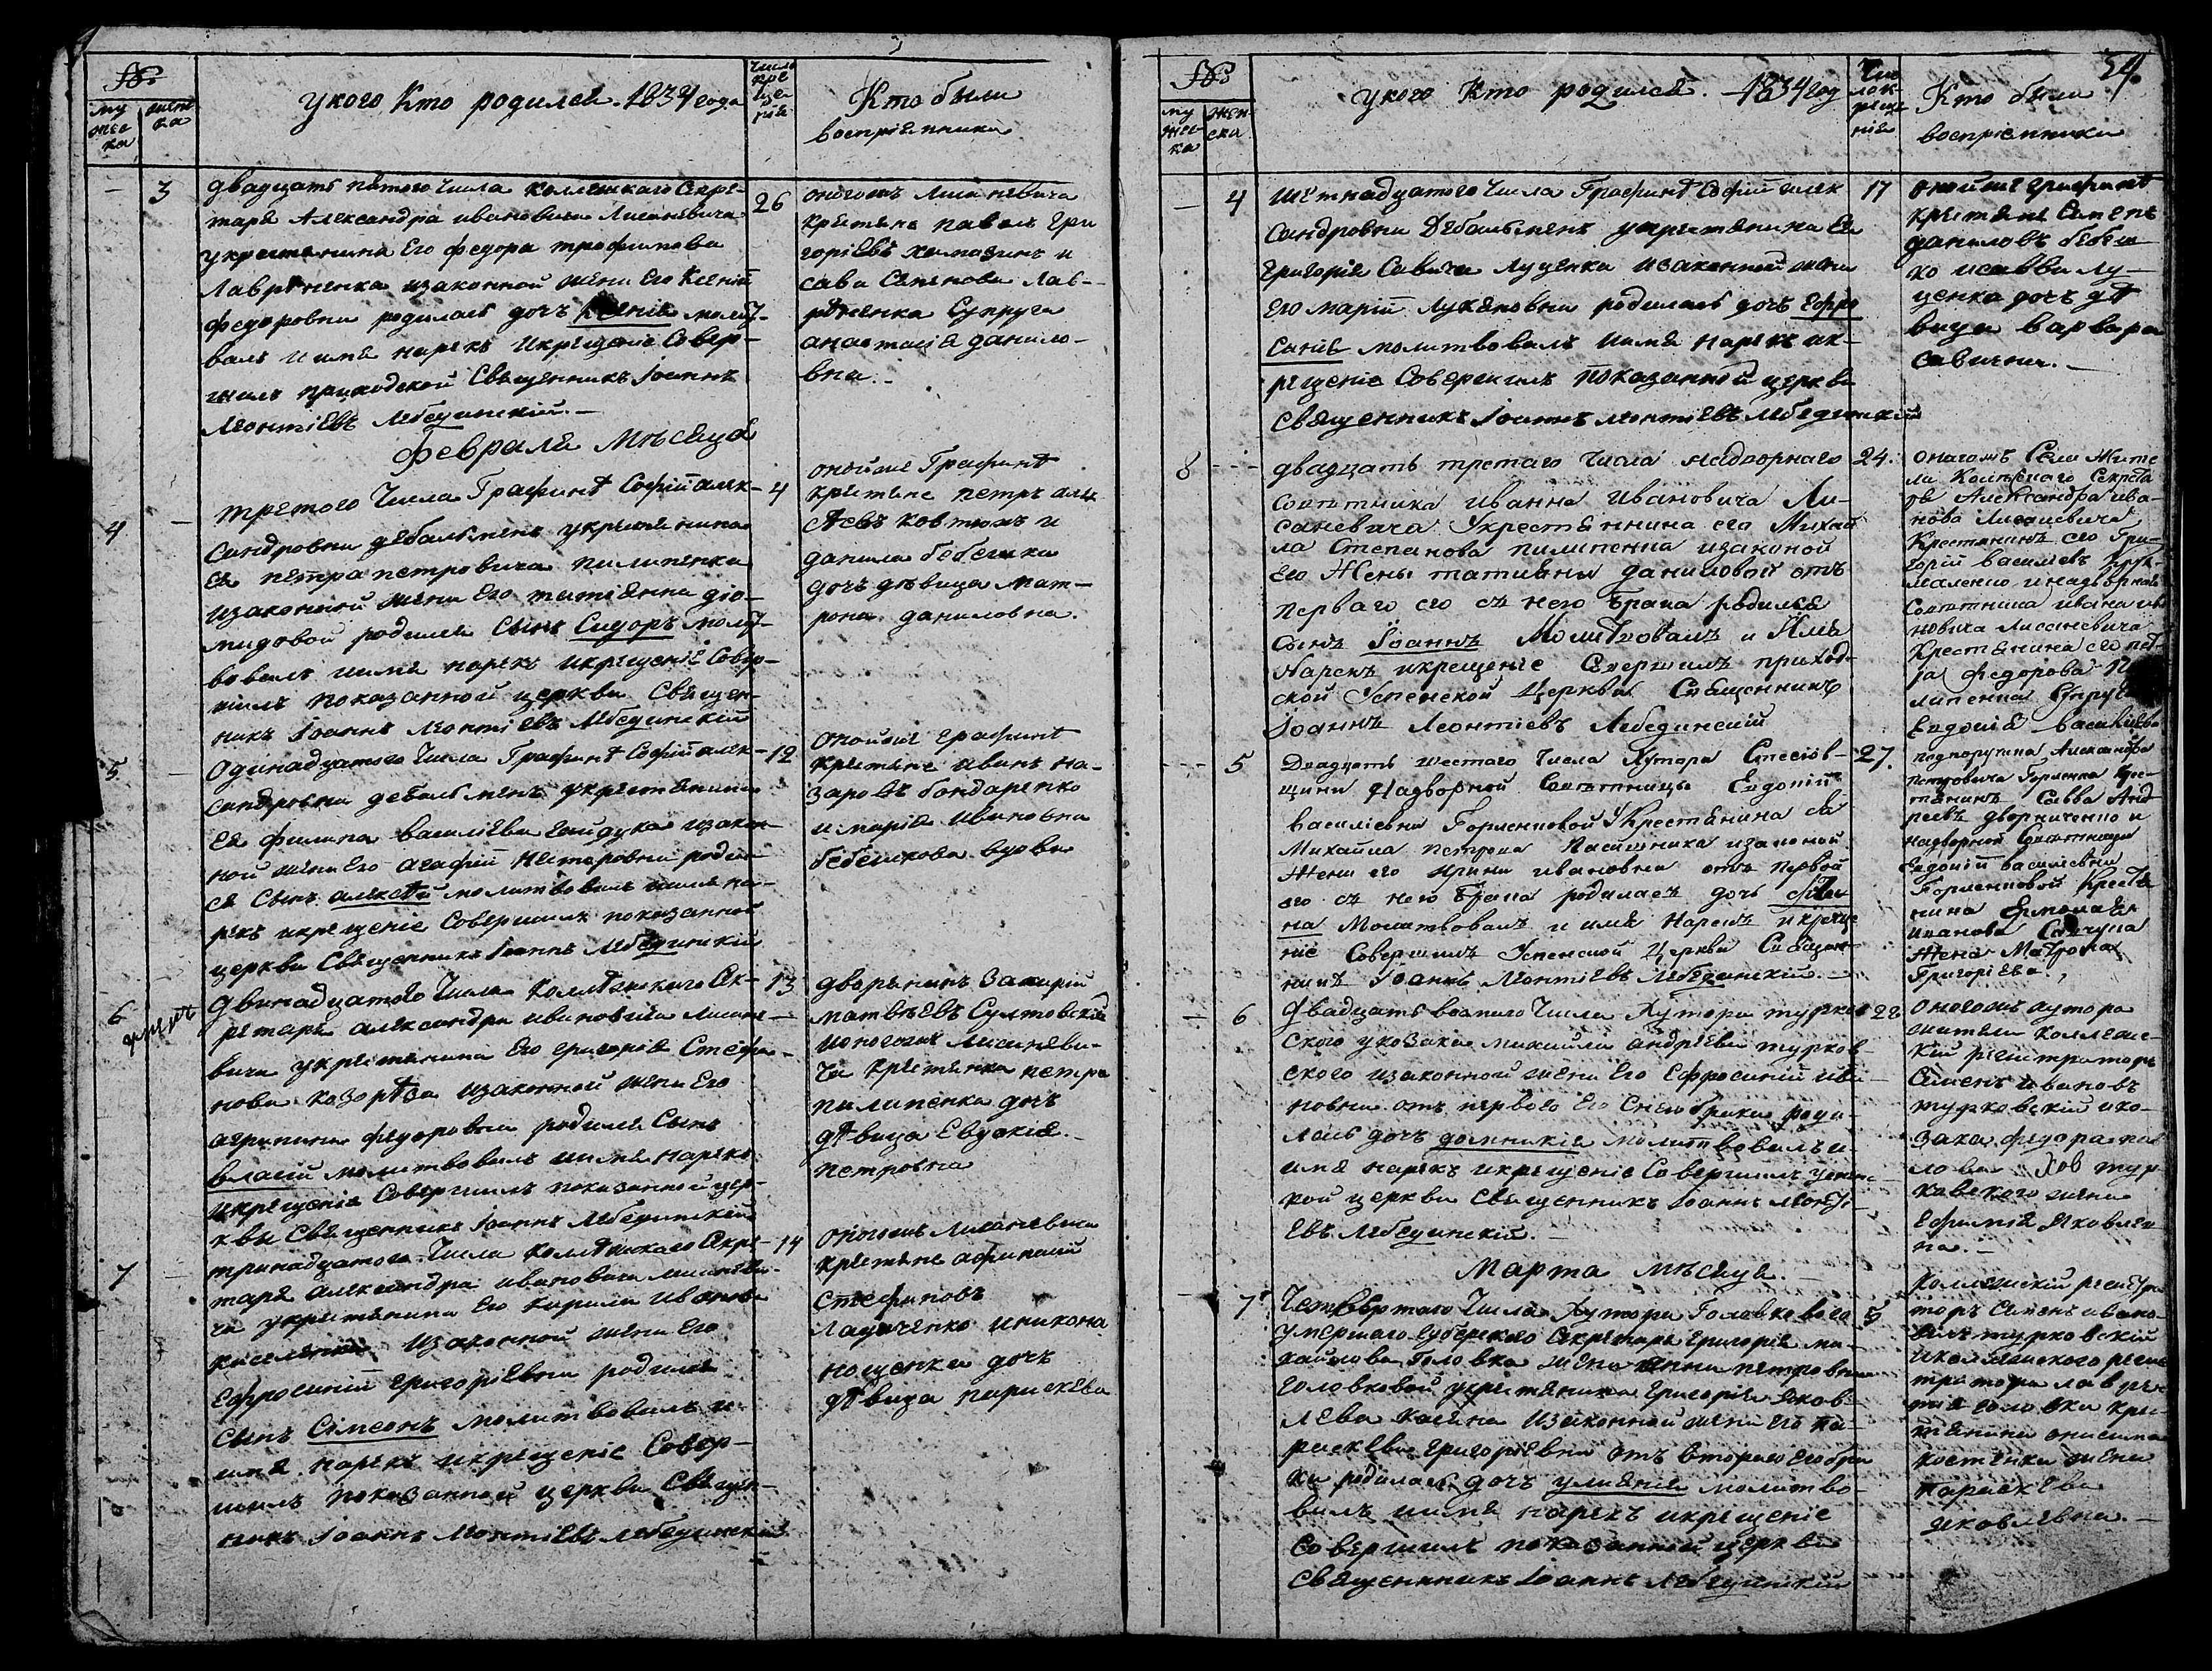 №
му
жес
ка
женс
ка
у кого Кто родился 1834 года
Число
кре
ще
нія
Кто были
воспріемники
3
двадцать пятого Числа коллежкаго Секре-
таря Александра ивановича Лисаневича
укрестянина Его федора трофимова
Лавриненка изаконной жени Его Ксеній
федоровни родилась дочъ молит-
валъ иимя нарекъ икрещеніе Совер-
шилъ приходской Священникъ Іоаннъ
Леонтіевъ Лебединскій.
26
оногожъ Лисаневича
Крестяне павелъ Гри
горіевъ и
сава Семенова Лав-
риненка Супруга
анастасія данило-
вна.
февраля мѣсяца
4
третого Числа Графинѣ Софій алек-
сандровни дебальменъ укрестянина
Ея петра петровича пилипенка
изаконной жени Его татіянни діо-
мидовой родился Сынъ Сидоръ молит-
вовалъ иимя нарекъ икрещеніе Совер-
шилъ показанной церкви Священ-
никъ Іоаннъ Леонтіевъ Лебединскій
4
онойже Графинѣ
крестяне петръ алек
сѣевъ ковтюхъ и
данила бебешка
дочъ дѣвица мат-
рона даниловна.
5
Одинадцатого Числа Графинѣ Софій алек-
сандровни дебальменъ укрестянина
Ея филипа василіева гайдука изакон-
ной жени Его агафій Нестеровни родил-
ся Сынъ алексѣй молитвовалъ иимя на-
рекъ икрещеніе Совершилъ показанной
церкви Священникъ Іоаннъ Лебединскій
12
онойже Графинѣ
крестяне иванъ на-
заровъ бондаренко
и марія ивановна
бебешкова вдова
6
двинадцатого Числа Коллѣжского Сек-
ретаря александра ивановича Лисане-
вича укрестянина Его григорія Стефа-
нова изаконной жени Его
агрипини федоровни родился Сынъ
власій молитвовалъ иимя нарекъ
икрещеніе Совершилъ показанной цер-
кви Священникъ Іоаннъ Лебединскій
13
дворянинъ Захарій
матвѣевъ
ионогожъ Лисаневи-
ча крестянка петра
пилипенка дочъ
дѣвица Евдокія
петровна
7
тринадцатого Числа коллѣжского Секре-
таря александра ивановича Лисаневи-
ча укрестянина Его кирила иванова
изаконной жени Его
Ефросиній григоріевни родился
сынъ Сімеонъ молитвовалъ и
имя нарекъ икрещеніе Совер-
шилъ показанной церкви Священ-
никъ Іоаннъ Леонтіевъ Лебединскій
14
оногожъ Лисаневича
крестяне афанасій
Стефановъ
иникона
нощенка дочъ
дѣвица параскева
54.
№
му
жес-
ка
жен-
ска
у кого Кто родился. 1834 год
Чис
ло к
реще
нія
Кто были
воспріемники
4
Шѣстнадцатого Числа Графинѣ Софій алек
сандровни Дебальменъ укрестянина Ея
Григорія Савича Луценка изаконной жени
Его марій Лукяновни родилась дочъ Ефро
санія молитвовалъ иимя нарекъ ик-
рещеніе Совершилъ показанной церкви
Священникъ Іоаннъ Леонтіевъ Лебединскій
17
онойже Графинѣ
крестяне Семенъ
даниловъ бебеш
ко исавви Лу-
ценка дочъ дѣ
вица варвара
савична.
8
двадцать третаго Числа Надворнаго
Совѣтника Иванна Ивановича Ли-
саневича Укрестяннина его Михай
ла Степанова пилипенка изаконой
Его Жены татияны даниловой отъ
Перваго его съ нею брака родился
Сынъ Іоаннъ Молитвовалъ и Имя
Нарекъ икрещеніе Совершилъ приход-
ской Успенской Церкви Священникъ
Іоаннъ Леонтіевъ Лебединскій
24.
Оногожъ Села Жите
ля Колѣжского Секрета
ря Александра ива-
нова Лисаневича
Крестянинъ его Гри-
горій васильевъ
инадворнаго
Совѣтника ивана ива
новича Лисаневича
Крестянина его пет-
ра Федорова Пи
липенка Супруга
Евдокія васильева
5
Двадцать шестаго Числа Хутора
Надворной Совѣтницы Евдокій
Василіевни Горленковой Укрестянина ея
Михайла Петрова изаконой
Жени его Ирини ивановни отъ первой
его съ нею брака родилась дочъ
на Молитвовалъ и имя Нарекъ икреще
ніе Совершилъ Успенской Церкви Священ-
никъ Іоаннъ Леонтіевъ Лебединскій.
27.
подпоручика Александра
Петровича Горленка Крес-
тянинъ Савва Анд
реевъ дворниченко и
надворной Совѣтницы
Евдокій василевни
Горленковой Крестя
нина Ермолая
иванова
Жена Матрона
Григоріева
6
двадцать восмого Числа Хутора турков
ского укозака михайла андріева турков-
ского изаконной жени Его Ефросиній ива
новни отъ первого Его Снею брака роди-
лась дочъ домникія молитвовалъ и
имя нарекъ икрещеніе Совершилъ успенс-
кой церкви Священникъ Іоаннъ Леонті-
евъ Лебединскій.
28
оногожъ хутора
жители коллежс-
кій регистраторъ
Сименъ ивановъ
турковскій ико-
зака федора пав
лова тур
ковского жена
Ефимія яковлев
на.
Марта мѣсяца.
7
Четвѣртого Числа Хутора Головковего
умершаго губерского Секретаря григорія ми-
хайлова Головка жени анни петровни
головковой укрестянина григорія яков-
лева изаконной жени Его па-
раскевіи григоріевни отъ второго Его бра
ка родилась дочъ улиянія молитво-
валъ иимя нарекъ икрещеніе
Совершилъ показанной церкви
Священникъ Іоаннъ Лебединскій
5
коллежскій регистра
торъ Сименъ ивано-
вичъ турковскій
иколлежского регис
тратора лаврен
тія головки крес
тянина онисима
костенка жена
параскева
яковлевна.